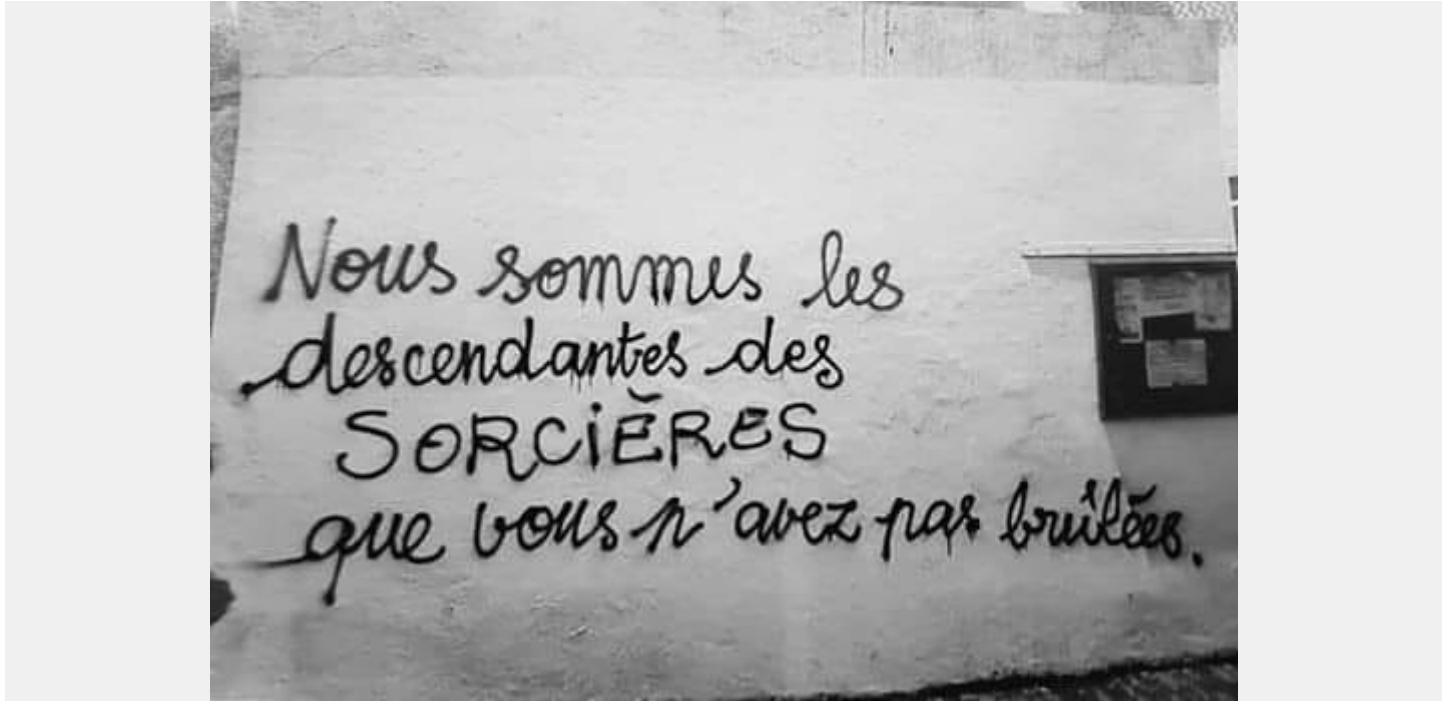 Nous sommes les
descendantes des
SORCIÈRES
que vous n'avez pas brûlées.